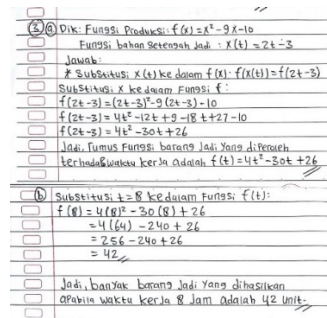 ③ ⓐ Dik: Fungsi Produksi: f(x) = x² - 9x - 10
Fungsi bahan setengah jadi: x(t) = 2t - 3
Jawab:
* Substitusi x(t) ke dalam f(x): f(x(t)) = f(2t-3)
Substitusi x ke dalam fungsi f:
f(2t-3) = (2t-3)² - 9(2t-3) - 10
f(2t-3) = 4t² - 12t + 9 - 18t + 27 - 10
f(2t-3) = 4t² - 30t + 26
Jadi, rumus fungsi barang jadi yang diperoleh
terhadap waktu kerja adalah f(t) = 4t² - 30t + 26
ⓑ Substitusi t = 8 ke dalam fungsi f(t):
f(8) = 4(8)² - 30(8) + 26
= 4(64) - 240 + 26
= 256 - 240 + 26
= 42
Jadi, banyak barang jadi yang dihasilkan
apabila waktu kerja 8 jam adalah 42 unit.